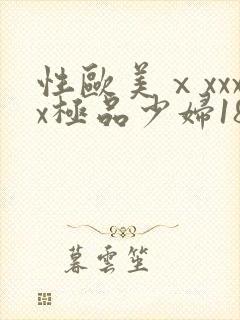 性歐美ⅹxxx
x極品少婦18
暮雲笙